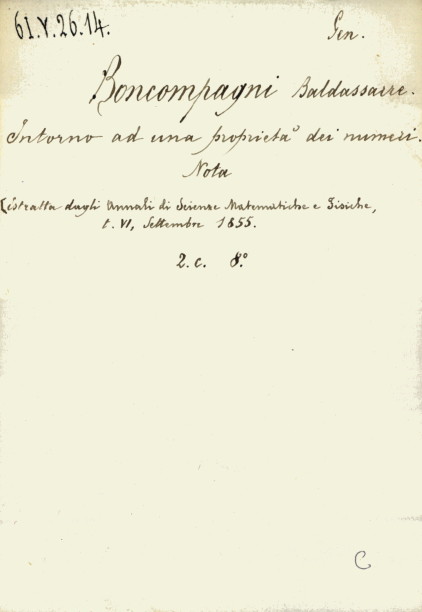 61.V.26.14.
Gen.
Boncompagni Baldassarre.
Intorno ad una proprietà dei numeri.
Nota
[Estratta dagli Annali di Scienze Matematiche e Fisiche,
t. VI, Settembre 1855.
2. c. 8.°
C